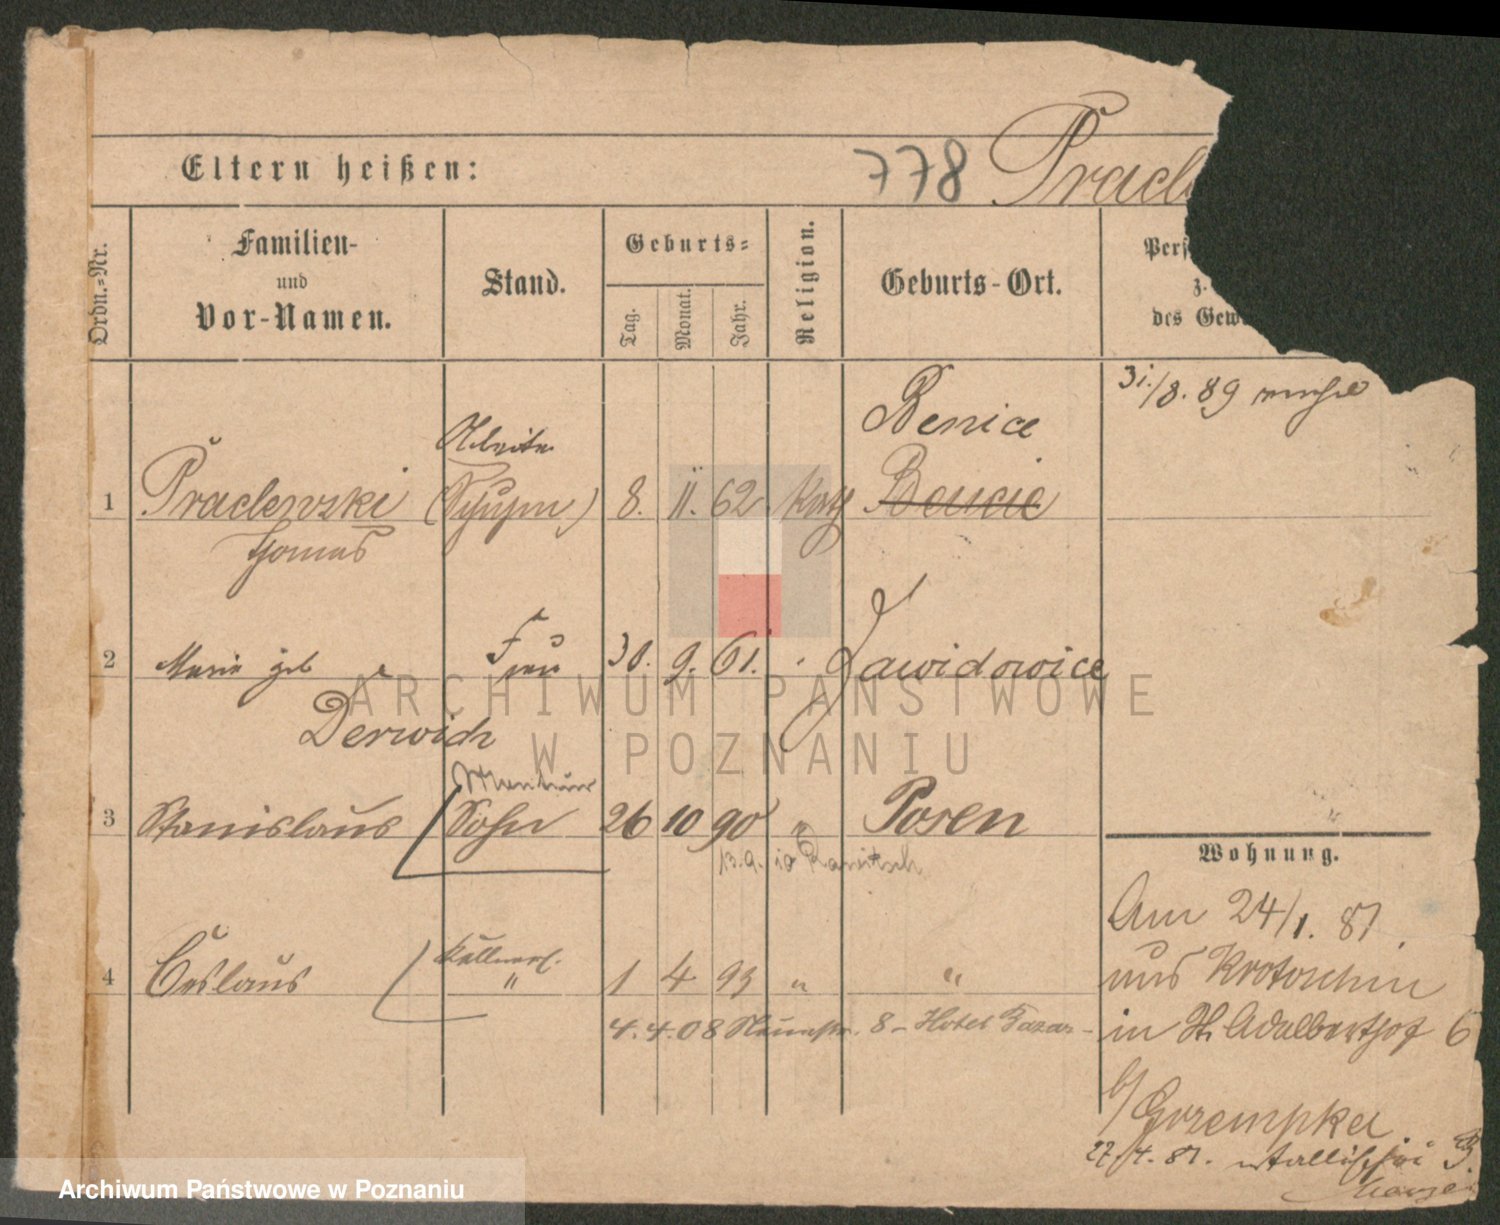 Eltern heißen:
778 Pracl
Ordn.-Nr.
Familien-
und
Vor-Namen.
Stand.
Geburts-
Tag.
Monat.
Jahr.
Religion.
Geburts-Ort.
Pers
z.
des Gew
31./8. 89
Benice
Arbeiter
1 Praclewski 8. 11. 62 Kath Benicie
Thomas
2 Marie geb Frau 30. 9. 61. Zawidowice
Derwich
3 Stanislaus Sohn 26 10 90 " Posen
13.9.10 Rawitsch
Wohnung.
Am 24/1. 87.
aus Krotoschin
4 Ceslaus Kellnerl. " 1 4 93 " "
4.4.08 8 - Hotel Bazar -
in St. Adalberthof 6
b/ Gorzempka
27./4. 87. 3.
ARCHIWUM PAŃSTWOWE
W POZNANIU
Archiwum Państwowe w Poznaniu